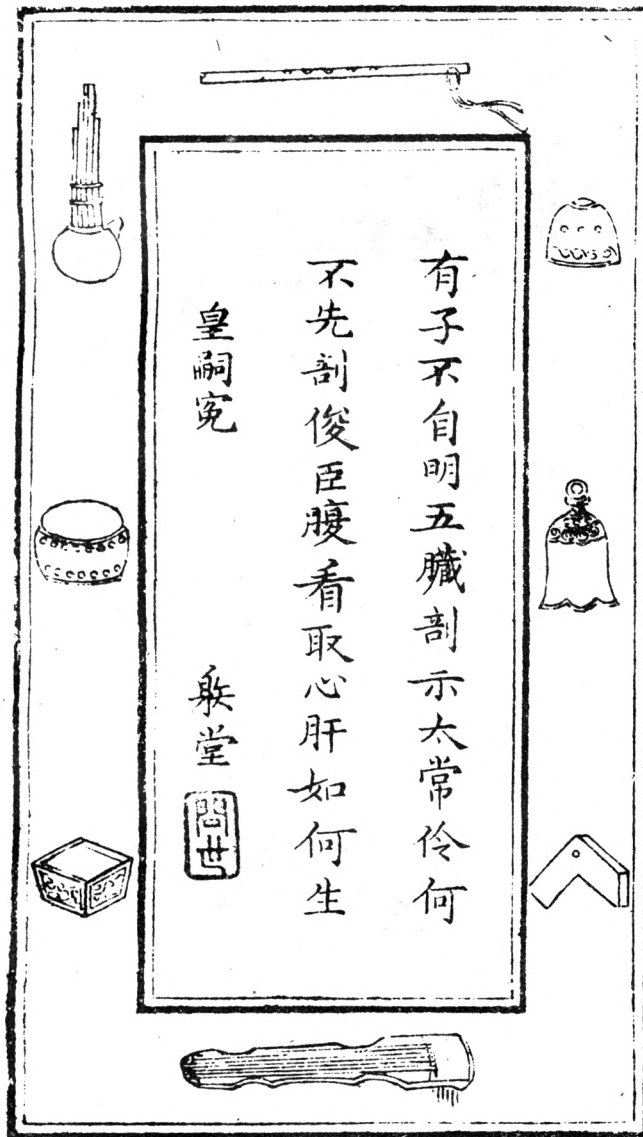 有子不自明五臟剖示太常伶何
不先剖俊臣腹看取心肝如何生
皇嗣寃
䠶堂